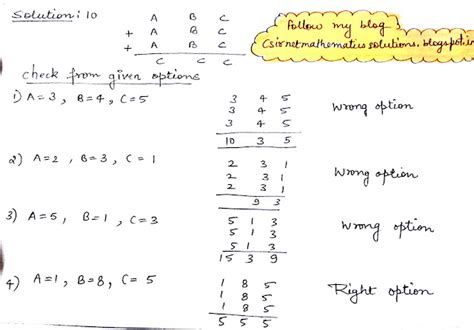 Solution: 10
A B C
+ A B C
+ A B C
C C C
Follow my blog
Csirnetmathematicssolutions.blogspot.in
check from given options
1) A=3, B=4, C=5
3 4 5
3 4 5
3 4 5
10 3 5
Wrong option
2) A=2, B=3, C=1
2 3 1
2 3 1
2 3 1
9 3
Wrong option
3) A=5, B=1, C=3
5 1 3
5 1 3
5 1 3
15 3 9
Wrong option
4) A=1, B=8, C=5
1 8 5
1 8 5
1 8 5
5 5 5
Right option